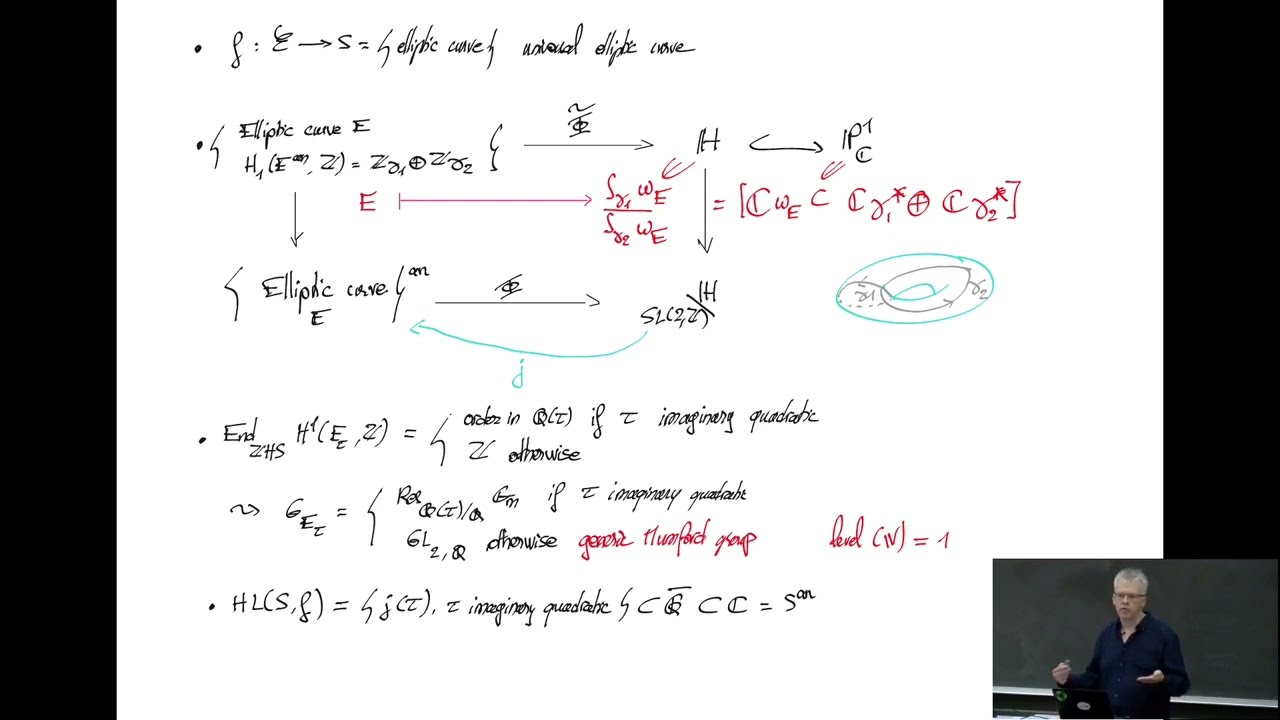 • f : ℰ → S = { elliptic curve } universal elliptic curve
• { Elliptic curve E
H₁(E^an, ℤ) = ℤγ₁ ⊕ ℤγ₂ } Φ̃ → ℍ ↪ ℙ¹_ℂ
E ↦ ∫_γ₁ ω_E / ∫_γ₂ ω_E = [ℂω_E ⊂ ℂγ₁* ⊕ ℂγ₂*]
{ Elliptic curve E }^an Φ → SL(2,ℤ)\ℍ
γ1 γ2
j
• End_ℤHS H¹(E_τ, ℤ) = { order in ℚ(τ) if τ imaginary quadratic
ℤ otherwise
⤳ G_E_τ = { Res_ℚ(τ)/ℚ G_m if τ imaginary quadratic
GL_2,ℚ otherwise generic Mumford group level (𝕍) = 1
• HL(S, f) = { j(τ), τ imaginary quadratic } ⊂ ℚ̄ ⊂ ℂ = S^an